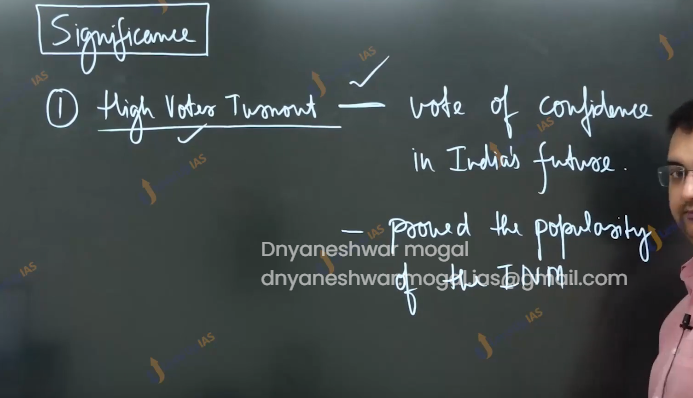 Significance
① High Voter Turnout — vote of confidence
in India's future.
— proved the popularity
of the INM
Dnyaneshwar mogal
dnyaneshwarmogal.ias@gmail.com
IAS
IAS
IAS
IAS
IAS
IAS
IAS
IAS
IAS